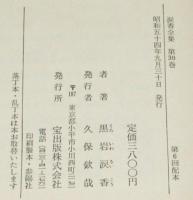 涙香全集 第30巻
第6回配本
昭和五十四年九月三十日 発行
定価三八〇〇円
著者 黒岩涙香
発行者 久保欽哉
発行所 宝出版株式会社
〒187 東京都小平市小川西町三
電話
印刷製本・
落丁本・乱丁本は本お取替いたします